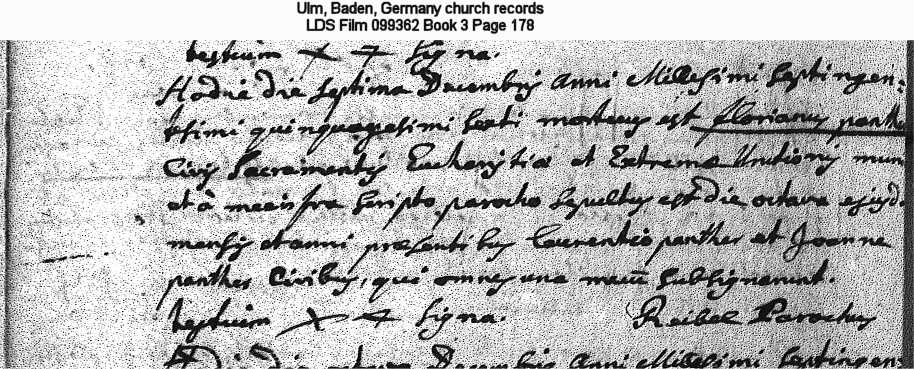 Ulm, Baden, Germany church records
LDS Film 099362 Book 3 Page 178
testium x + signa.
Hodie die septima Decembris Anni Millesimi septingen-
tesimi quinquagesimi sexti mortuus est florianus panther
Civis Sacramentis Eucharistiae et Extremae Unctionis mun
et à me infra scripto parocho sepultus est die octava ejusd.
mensis et anni praesentibus laurentio panther et Joanne
panther Civibus, qui omnes una mecum subsignarunt.
testium x + signa.
Reibel Parochus
Decembris Anni Millesimi septingen-